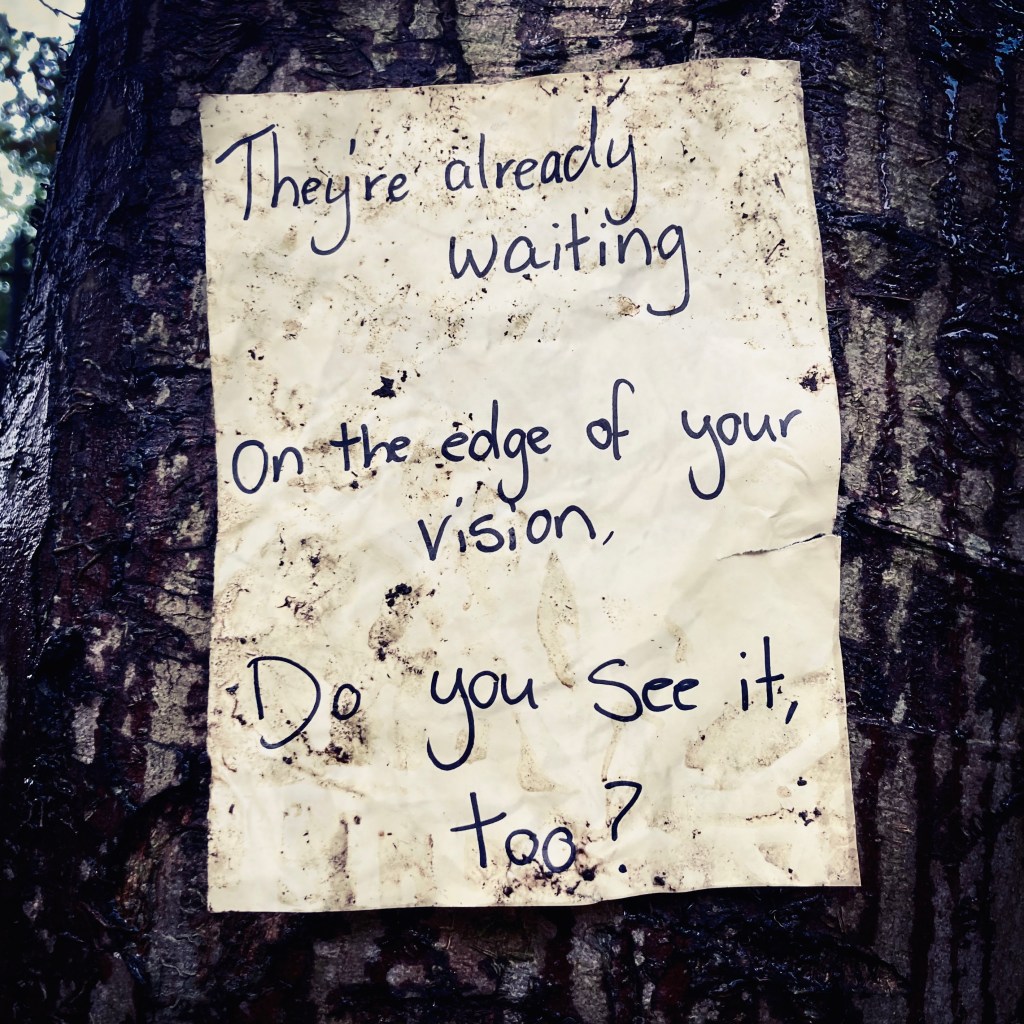 They're already
waiting
On the edge of your
vision,
Do you see it,
too?